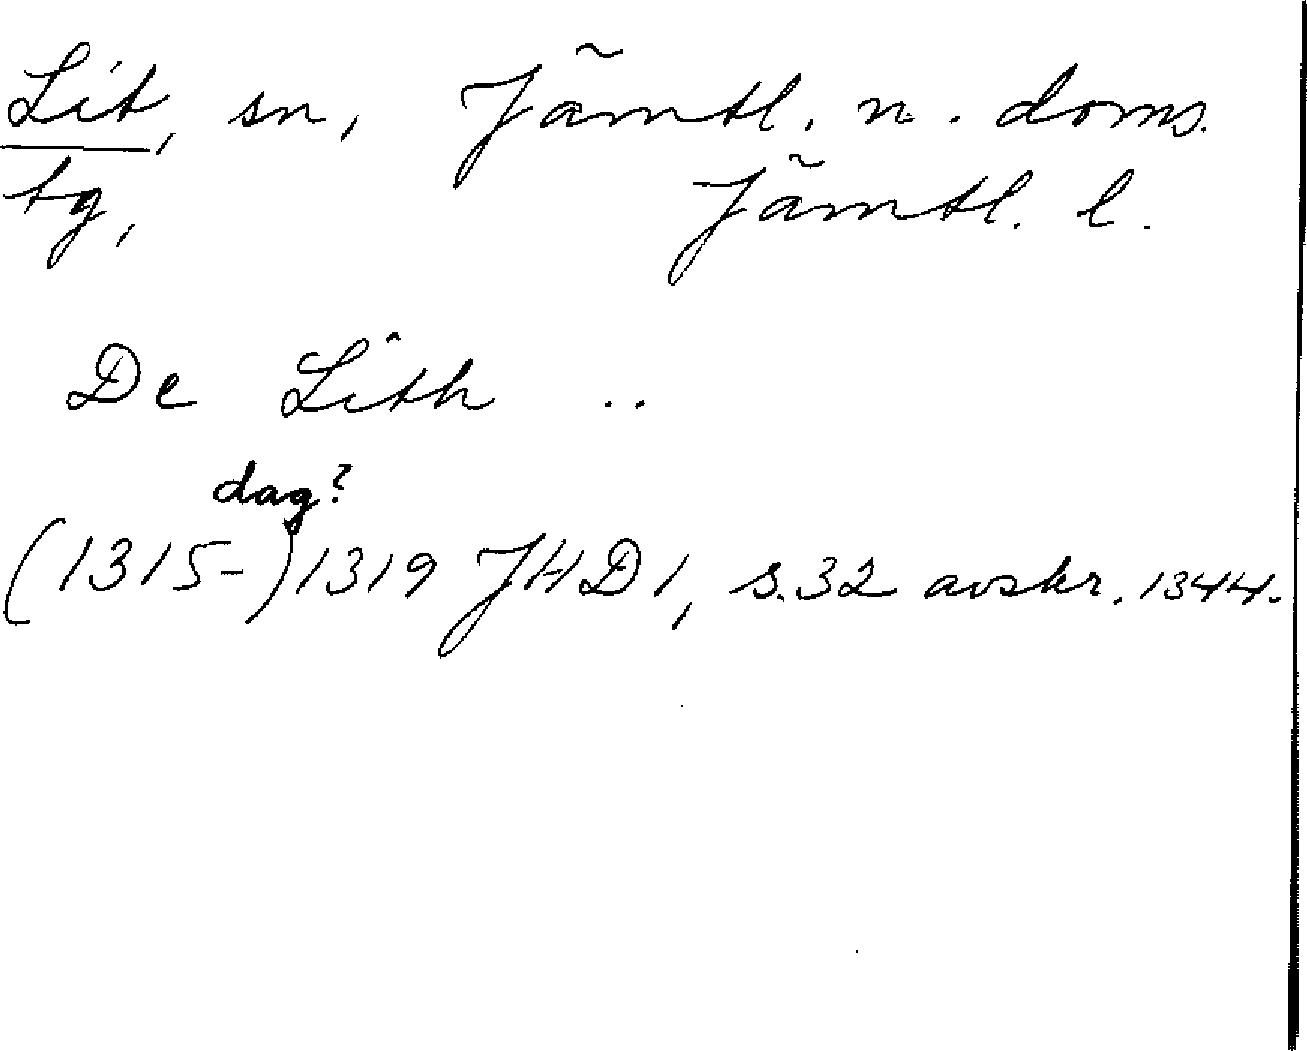 Lit, sn, Jämtl. n. doms.
tg, Jämtl. l.
De Lith ..
dag?
(1315-)1319 JHD1, s.32 avskr. 1344.